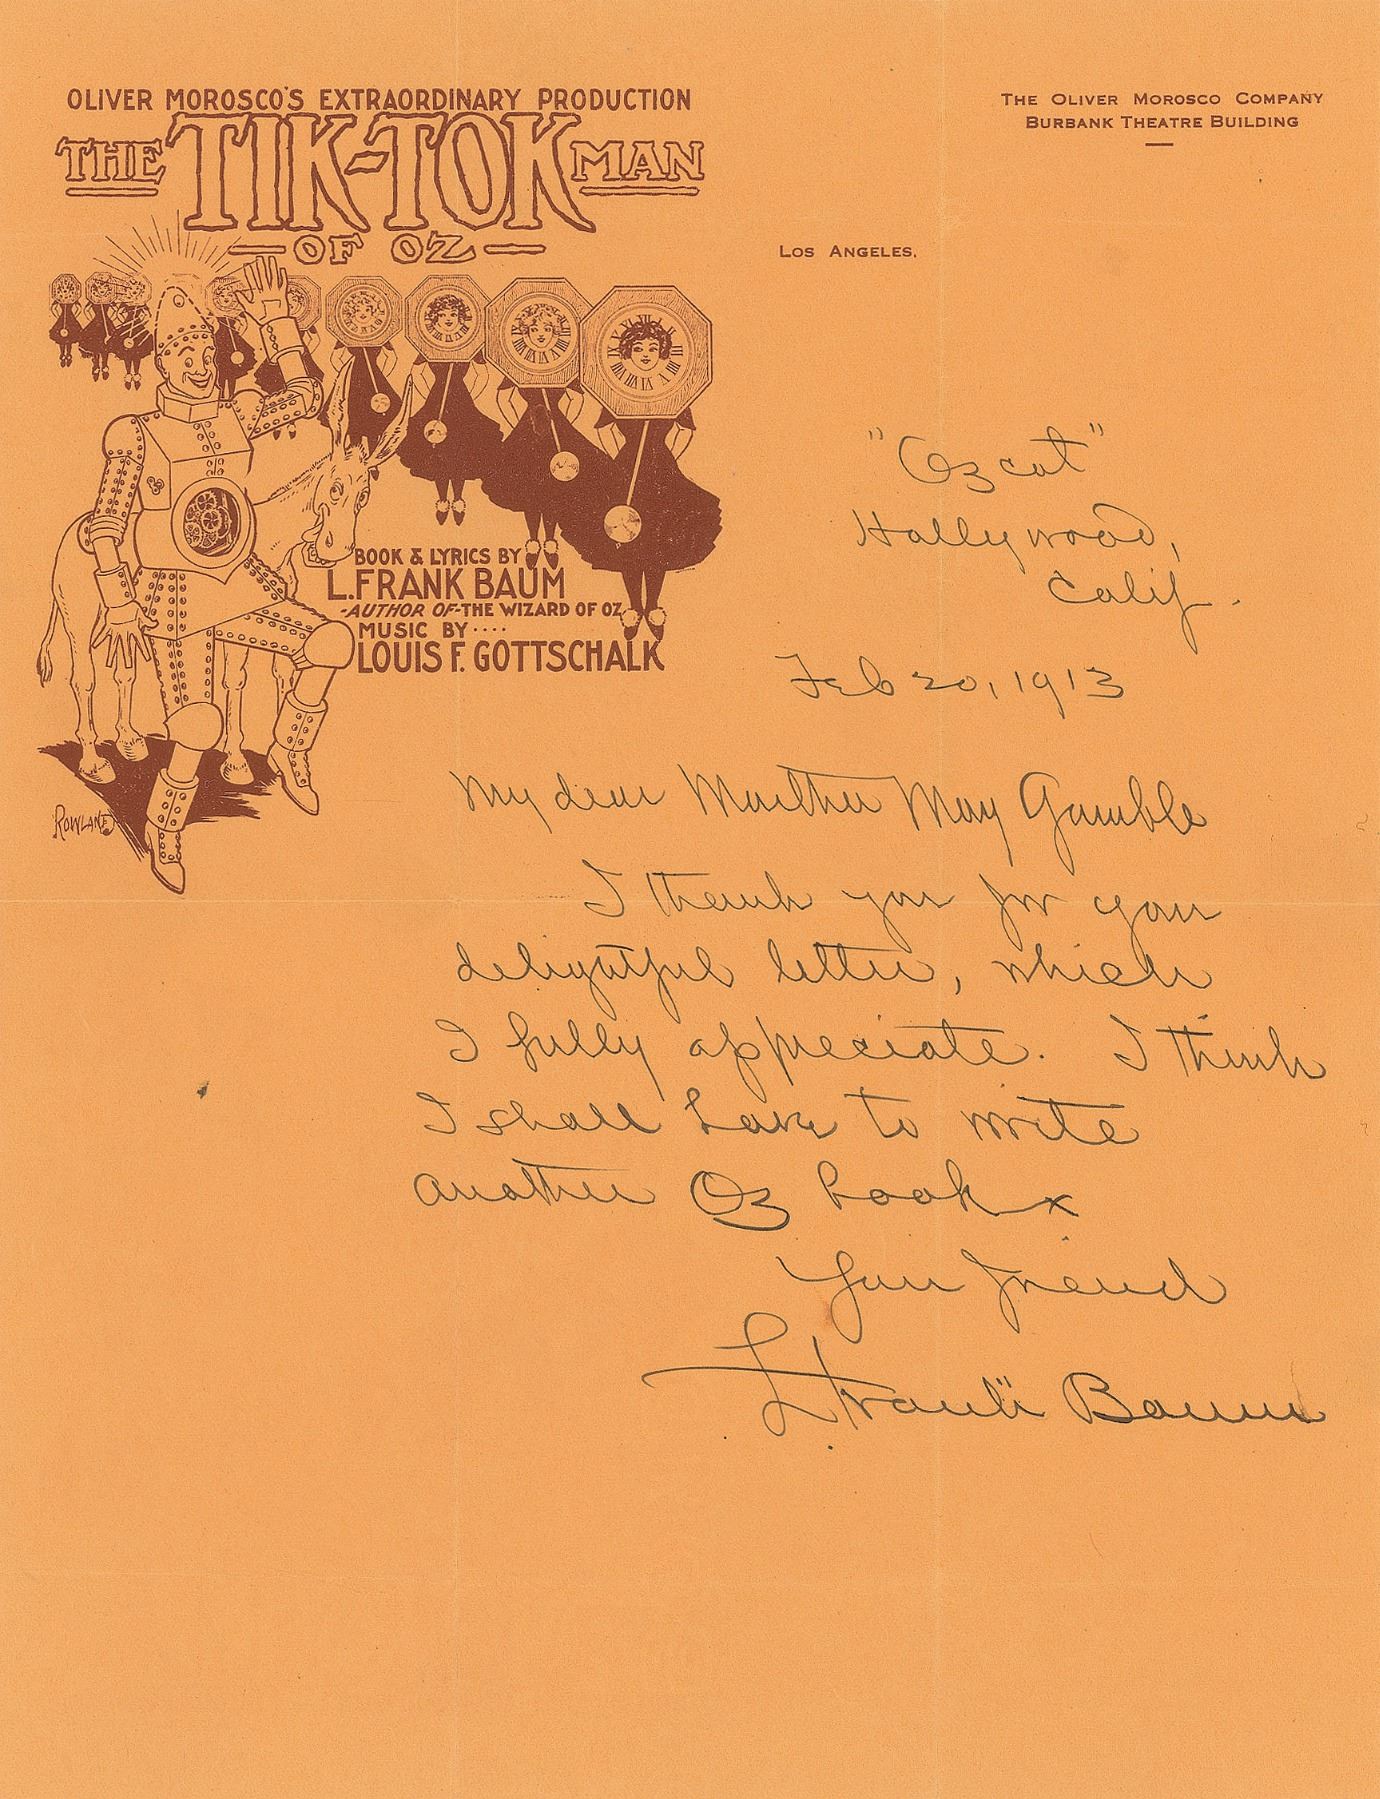 OLIVER MOROSCO'S EXTRAORDINARY PRODUCTION
THE TIK-TOK MAN
OF OZ
THE OLIVER MOROSCO COMPANY
BURBANK THEATRE BUILDING
LOS ANGELES,
BOOK & LYRICS BY
L. FRANK BAUM
-AUTHOR OF-THE WIZARD OF OZ
MUSIC BY....
LOUIS F. GOTTSCHALK
ROWLAND
"Ozcot"
Hollywood,
Calif.
Feb 20, 1913
My dear Martha May Gamble
I thank you for your
delightful letter, which
I fully appreciate. I think
I shall have to write
another Oz book x
Your friend
L Frank Baum